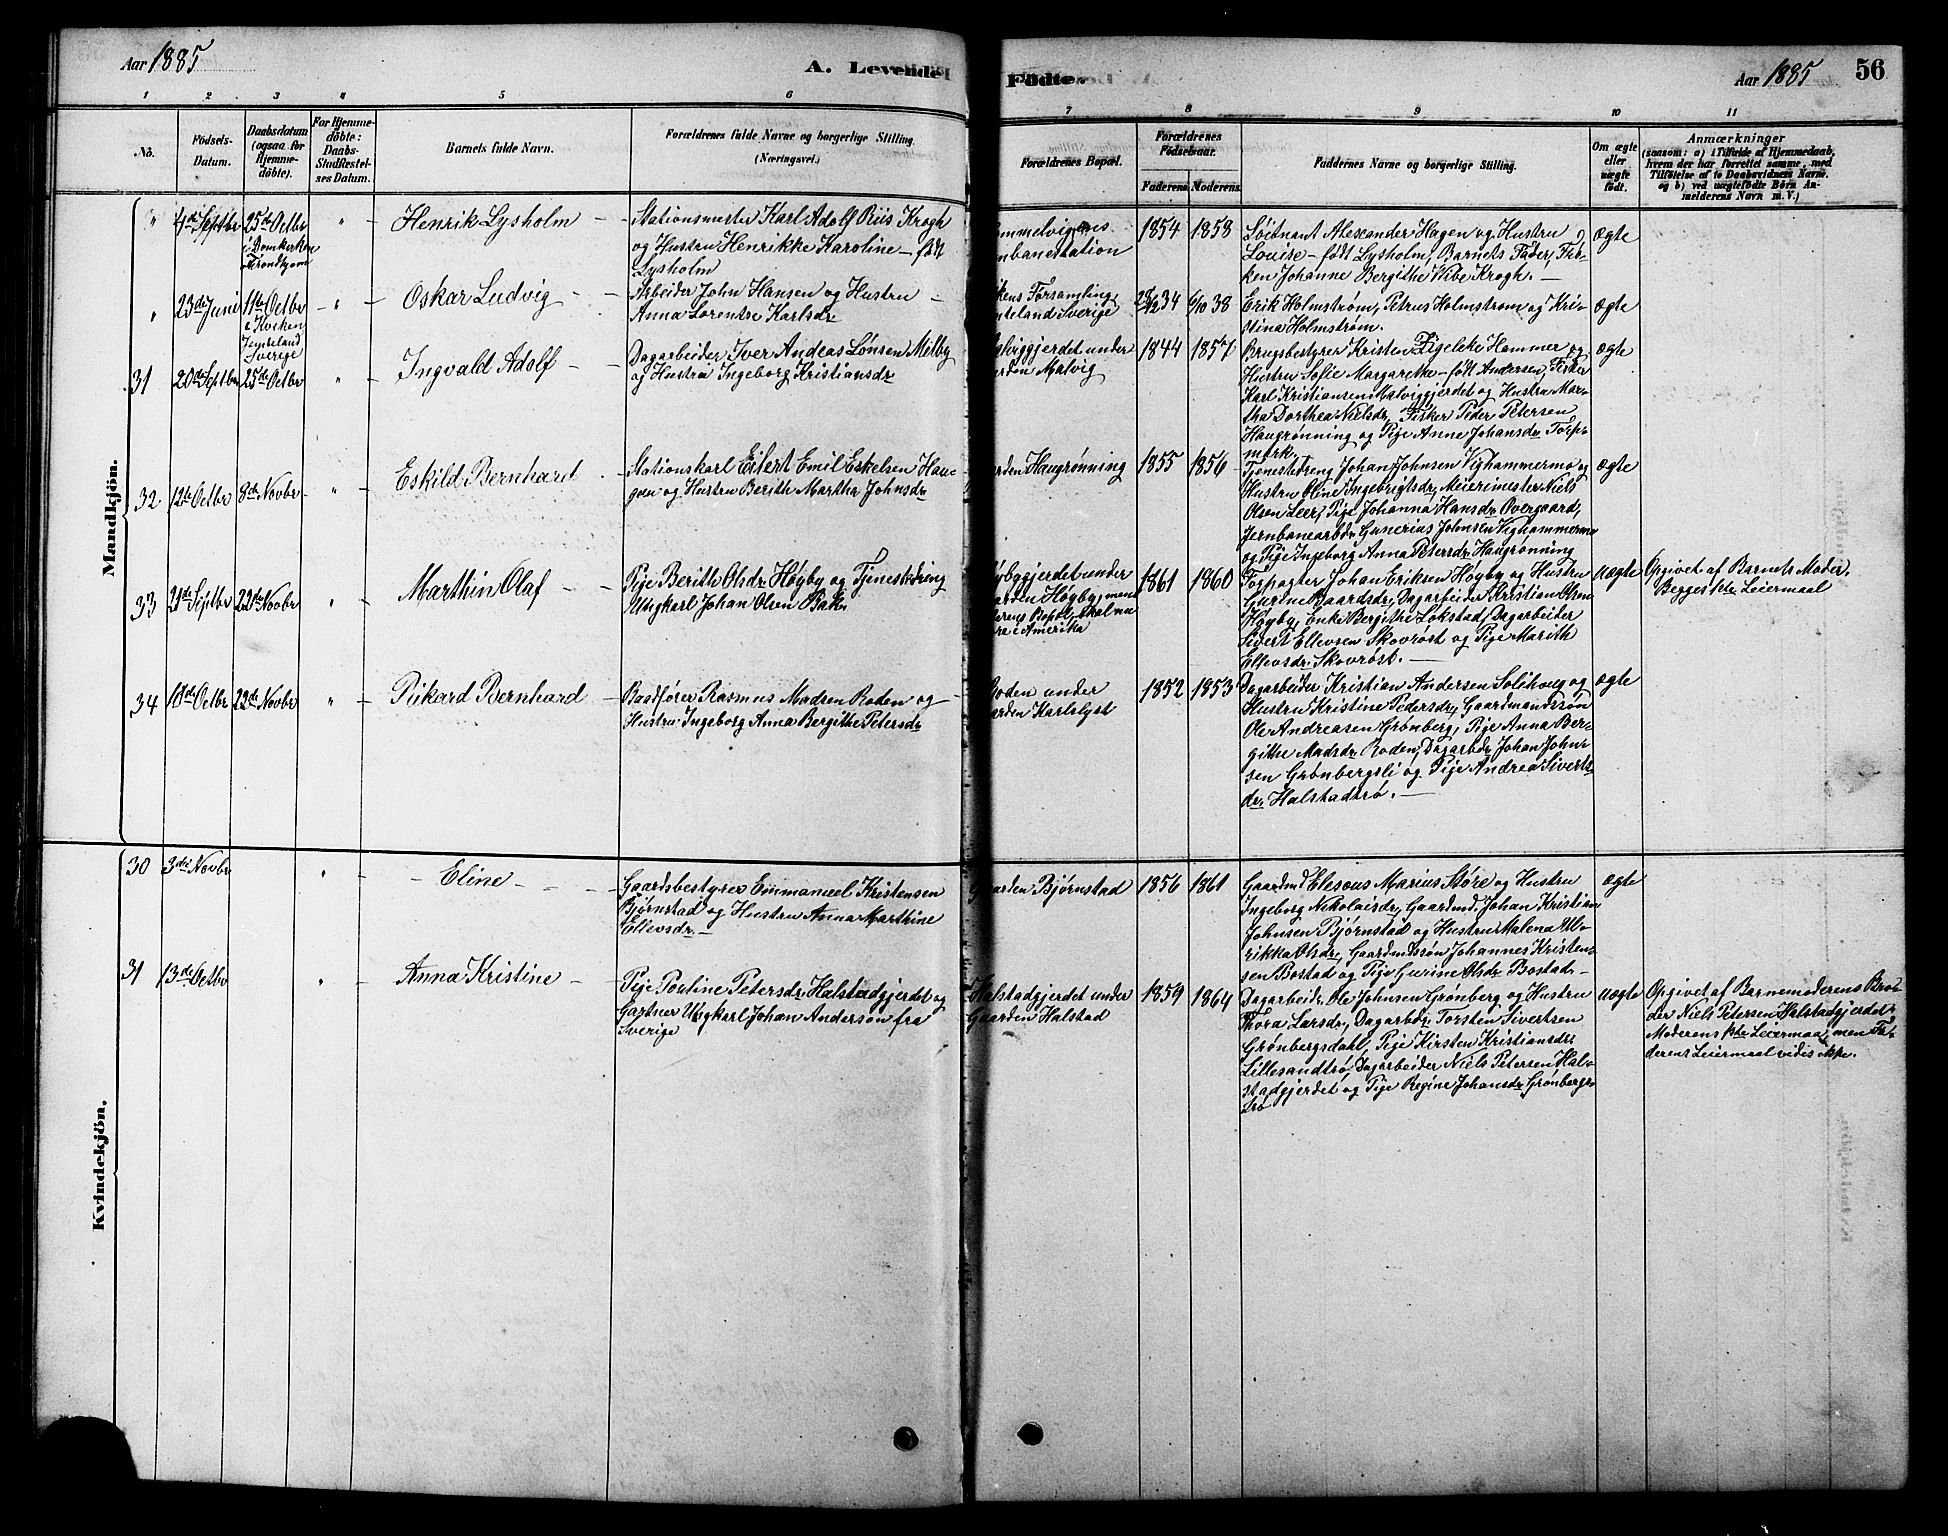 Aar 1885
A. Levende
Fødte.
Aar 1885
56
1 2 3 4 5 6 7 8 9 10 11
No.
Fødsels-
Datum.
Daabsdatum
(ogsaa for
Hjemme-
døbte).
For Hjemme-
døbte:
Daabs-
Stadfæstel-
ses Datum.
Barnets fulde Navn.
Forældrenes fulde Navne og borgerlige Stilling.
(Næringsvei.)
Forældrenes Bopæl.
Forældrenes
Fødselsaar.
Faderens. Moderens.
Faddernes Navne og borgerlige Stilling.
Om ægte
eller
uægte
født.
Anmærkninger
(saasom: a) i Tilfælde af Hjemmedaab,
hvem der har forrettet samme, med
Tilføielse af to Daabsvidners Navne.
og b) ved uægtefødte Børn An-
melderens Navn m. V.)
Mandkjön.
" 4de Septbr 25de Octbr
i Domkirken
Trondhjem
" Henrik Lysholm
Stationsmester Karl Adolf Riis Krogh
og Hustru Henrikke Karoline - født
Lysholm
ommelvigens
nbanestation
1854 1858
Løitnant Alexander Hagen og Hustru
Louise - født Lysholm, Barnets Fader, Frø-
ken Johanne Bergithe Vibe Krogh. -
ægte
" 23de Juni 11te Octbr
i Kviken
Jemteland
Sverige
" Oskar Ludvig
Arbeider John Hansen og Hustru
Anna Lorentse Karlsdr
ikens Forsamling,
nteland Sverige
28/2 34 6/10 38
Erik Holmstrøm, Petrus Holmstrøm og Kri-
stina Holmstrøm.
ægte
31 20de Septbr 25de Octbr " Ingvald Adolf
Dagarbeider Iver Andeas Lønsen Milby
og Hustru Ingeborg Kristiansdr
alviggjerdet under
arden Malvig
1844 1857
Brugsbestyrer Kristen Zigelcke Hammer og
Hustru Sofie Margarethe - født Andersen, Fisker
Karl Kristiansen Malviggjerdet og Hustru Mar-
tha Dorthea Nielsdr, Fisker Peder Petersen
Haugrønning og Pige Anne Johansdr Torp-
mark.
ægte
32 12te Octbr 8de Novbr " Eskild Bernhard
Stationskarl Eilert Emil Eskelsen Hau-
gen og Hustru Berith Martha Johnsdr
arden Haugrønning
1855 1856
Tjenestdreng Johan Johnsen Vighammermo og
Hustru Oline Ingebrigtsdr, Meierimester Niels
Olsen Leer, Pige Johanna Hansdr Overgaard,
Jernbanearbdr Gunerius Johnsen Vighammermo
og Pige Ingeborg Anna Petersdr Haugrønning
ægte
33 21de Septbr 22de Novbr " Marthin Olaf
Pige Berith Olsdr Høyby og Tjenestdreng
Ungkarl Johan Olsen Bak
øybygjerdet under
aarden Høyby, men
derens Bopæl skal væ-
re i Amerika
1861 1860
Forpagter Johan Eriksen Høyby og Hustru
Gurine Gaardsdr, Dagarbeider Kristian Olsen
Høyby, Enke Bergithe Lokstad, Dagarbeider
Sivert Ellevsen Skovrøst og Pige Marith
Ellevsdr Skovrøst. -
uægte
Opgivet af Barnets Moder.
Begges 1ste Leiermaal
34 18de Octbr 22de Novbr " Rikard Bernhard
Baadfører Rasmus Madsen Roden og
Hustru Ingeborg Anna Bergithe Petersdr
Roden under
aarden Karlslyst
1852 1853
Dagarbeider Kristian Andersen Solihveg og
Hustru Kristine Pedersdr, Gaardmandssøn
Ole Andreasen Grønberg, Pige Anna Ber-
githe Madsdr Roden, Dagarbdr Johan John-
sen Grønbergsli og Pige Andrea Siverts-
dr Halstadtrø. -
ægte
Kvindekjön.
30 3die Novbr " Eline
Gaardsbestyrer Emmanuel Kristensen
Bjørnstad og Hustru Anna Marthine
Ellevsdr -
Gaarden Bjørnstad
1856 1861
Gaardmd Elesous Marius Støre og Hustru
Ingeborg Nikolaisdr, Gaardmd. Johan Kristian
Johnsen Bjørnstad og Hustru Malena Ul-
rikka Olsdr, Gaardmdssøn Johannes Kristen-
sen Bostad og Pige Gurine Olsdr Bostad -
ægte
31 13de Octbr " Anna Kristine
Pige Pouline Petersdr Halstadgjerdet og
Gartner Ungkarl Johan Anderson fra
Sverige
Halstadgjerdet under
Gaarden Halstad
1859 1864
Dagarbeidr Ole Johnsen Grønberg og Hustru
Thora Larsdr, Dagarbdr Torsten Sivertsen
Grønbergsdahl, Pige Kirsten Kristiansdr
Lillesandtrø, Dagarbeider Niels Petersen Hal-
stadgjerdet og Pige Regine Johansdr Grønbergs-
trø
uægte
Opgivet af Barnemoderens Bro-
der Niels Petersen Halstadgjerdet,
Moderens 1ste Leiermaal, men Fa-
derens Leiermaal vides ikke.